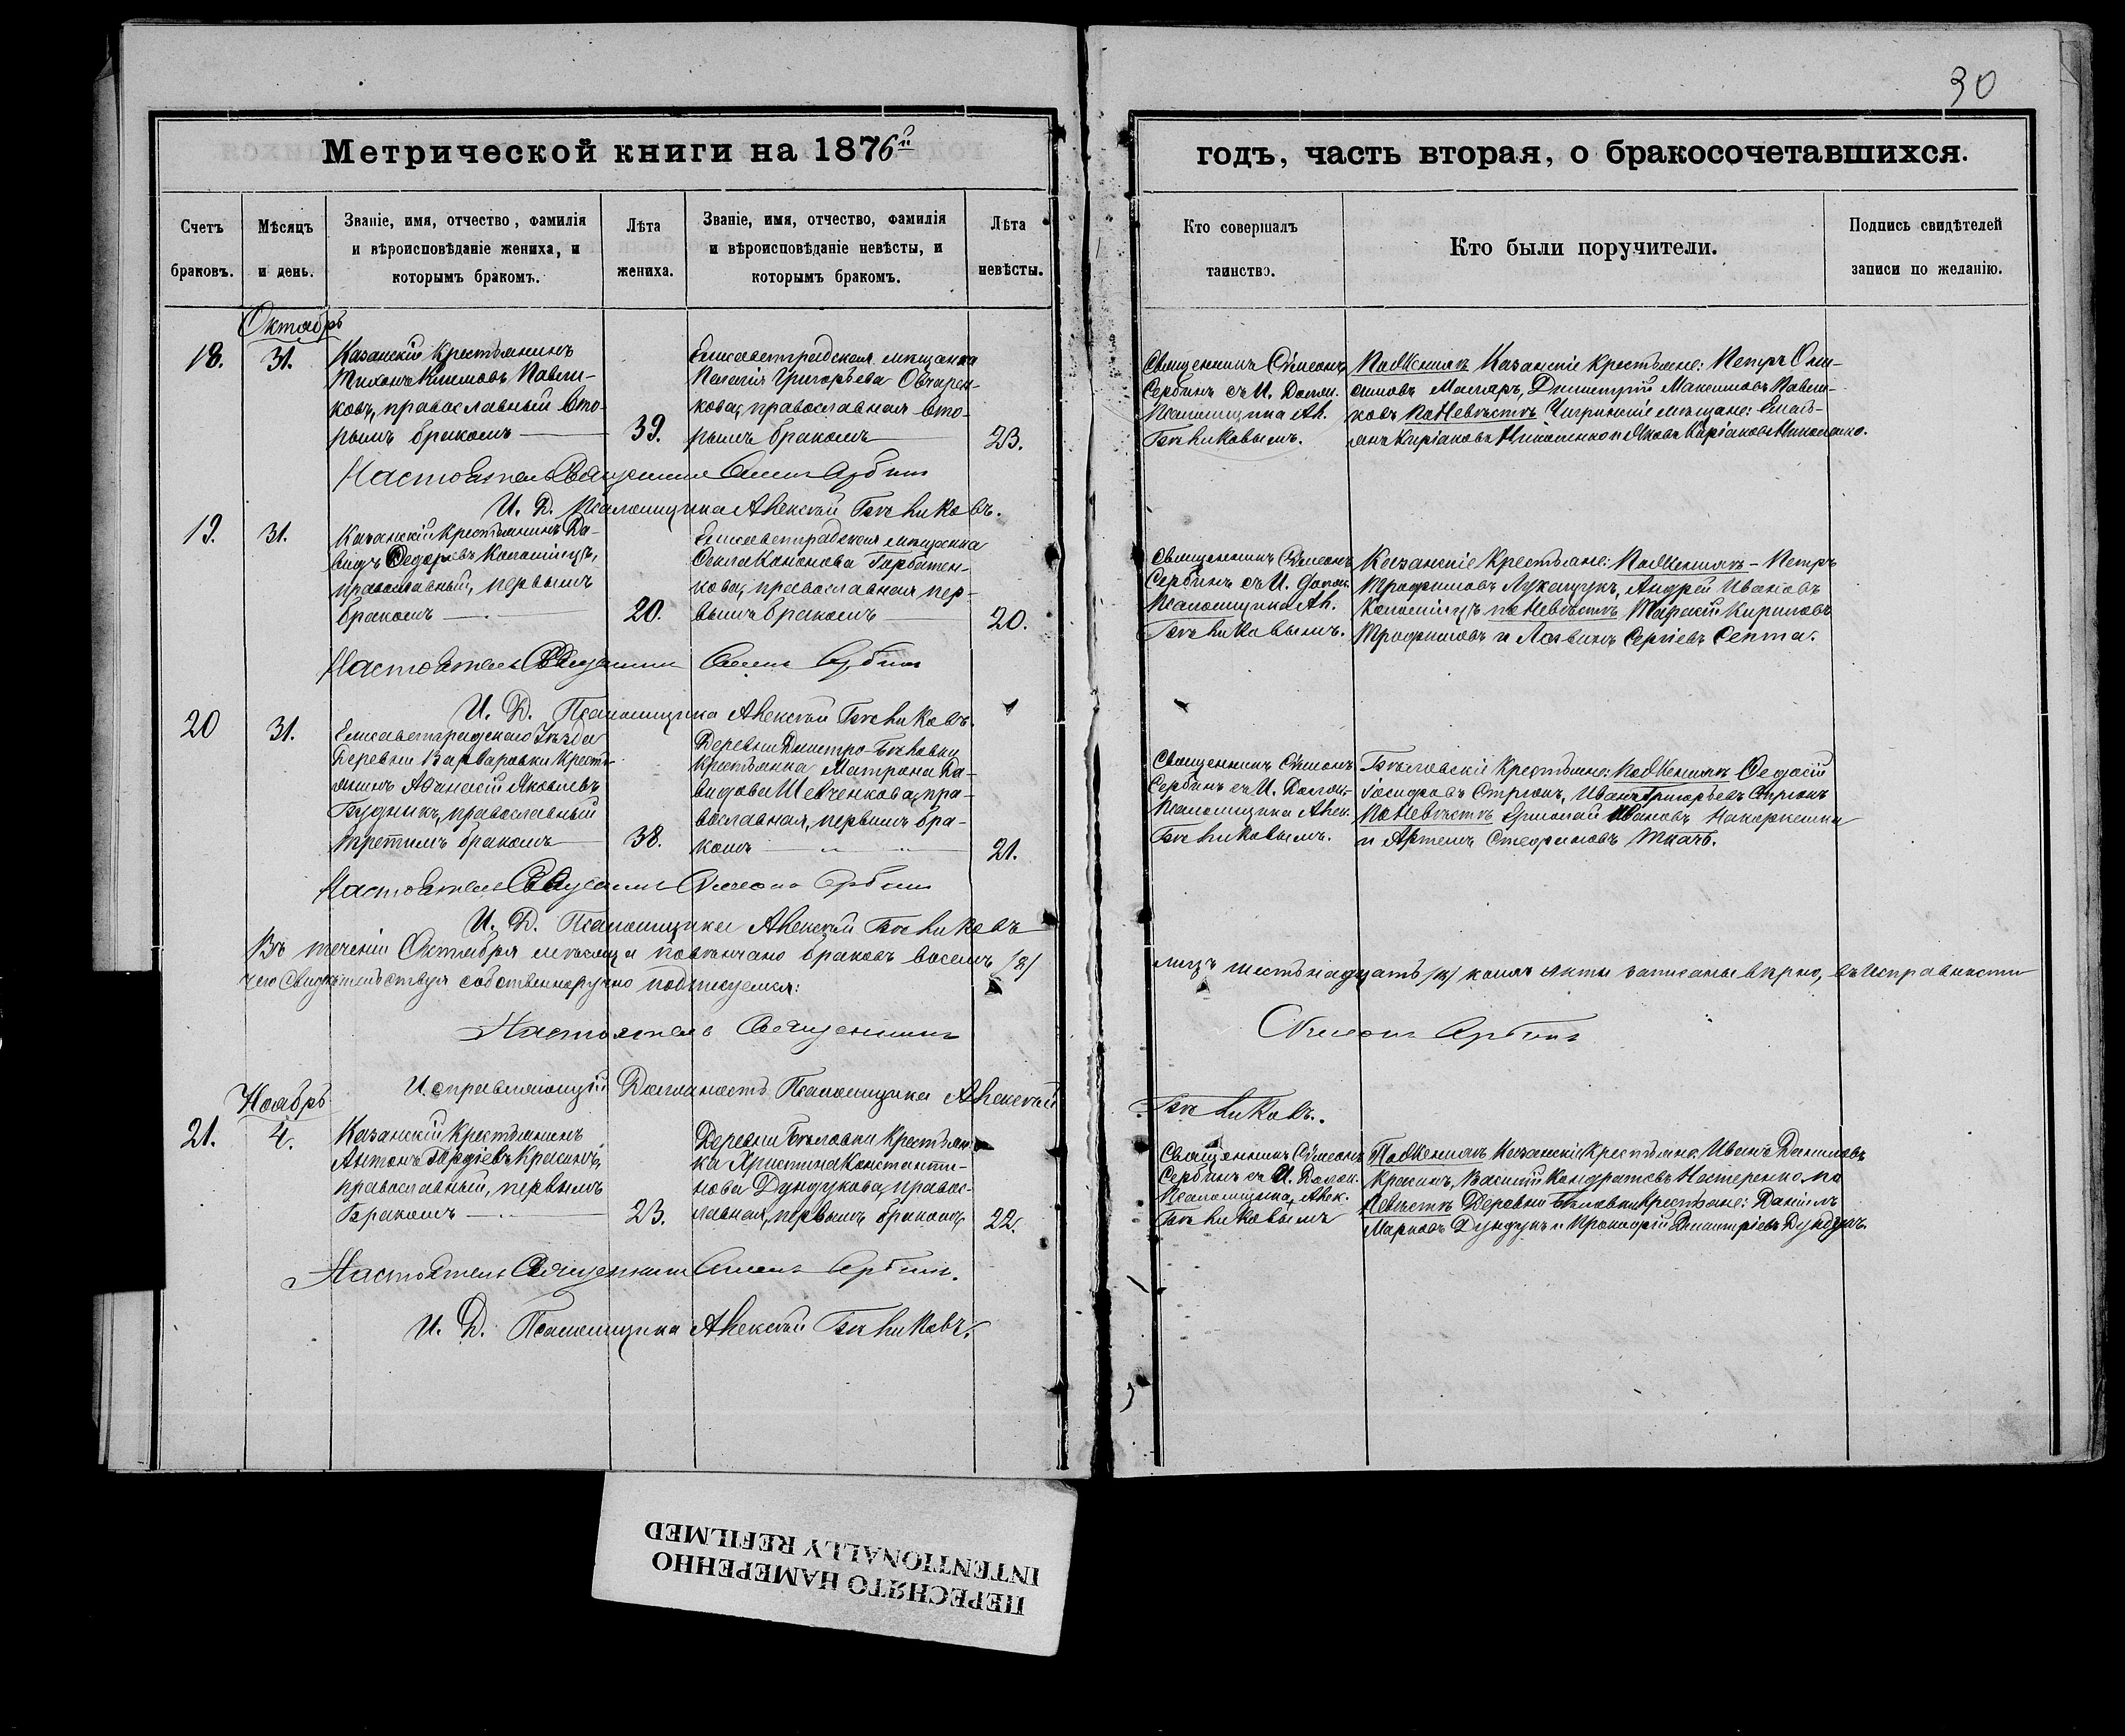 30
Метрической книги на 1876й
годъ, часть вторая, о бракосочетавшихся.
Счетъ браковъ.
Мѣсяцъ и день.
Званіе, имя, отчество, фамилія
и вѣроисповѣданіе жениха, и
которымъ бракомъ.
Лѣта жениха.
Званіе, имя, отчество, фамилія
и вѣроисповѣданіе невѣсты, и
которымъ бракомъ.
Лѣта невѣсты.
Кто совершалъ таинство.
Кто были поручители.
Подпись свидѣтелей
записи по желанію.
Октябрь
18.
31.
Казанскій Крестьянинъ
Тихонъ Климовъ Павли-
ковъ, православный вто-
рымъ бракомъ
39.
Елисаветградская мѣщанка
Пелагія Григорьева Овчарен-
кова, православная вто-
рымъ бракомъ
23.
Священникъ Сѵмеонъ
Сербинъ съ И. Долж.
Псаломщика Ал.
Бѣликовымъ.
По Женихѣ Казанскіе крестьяне: Петръ
Маляръ, Димитрій Максимовъ Павли-
ковъ по Невѣстѣ Чигринскіе мѣщане: Емель-
янъ Киріаковъ Николенко и Яковъ Киріаковъ Николенко.
Настоятель Священникъ Сѵмеонъ Сербинъ
И. Д. Псаломщика Алексѣй Бѣликовъ.
19.
31.
Казанскій Крестьянинъ Да-
видъ Ѳедоровъ Коломіецъ,
православный, первымъ
бракомъ
20.
Елисаветградская мѣщанка
Ѳекла Кононова Горбатен-
кова, православная пер-
вымъ бракомъ
20.
Священникъ Сѵмеонъ
Сербинъ съ И. Долж.
Псаломщика Ал.
Бѣликовымъ.
Казанскіе Крестьяне: По Женихѣ - Петръ
Трофимовъ Андрей Ивановъ
Коломіецъ по Невѣстѣ Кириловъ
Трофимовъ и Логвинъ Сергіевъ Септа.
Настоятель Священникъ Сѵмеонъ Сербинъ
И. Д. Псаломщика Алексѣй Бѣликовъ.
20
31.
Елисаветградскаго Уѣзда
Деревни Варваровки Кресть-
янинъ Аѳанасій Яковлевъ
Будникъ, православный
третимъ бракомъ
38.
Деревни Дмитро-Бѣловки
Крестьянка Матрона Да-
видова Шевченкова, пра-
вославная, первымъ бра-
комъ
21.
Священникъ Сѵмеонъ
Сербинъ съ И. Долж-
Псаломщика Алек.
Бѣликовымъ.
Бѣловскіе Крестьяне: По Женихѣ Ѳедосій
Іосифовъ Стрюкъ, Иванъ Григорьевъ Стрюкъ
По Невѣстѣ Ермолай Ивановъ
и Артемъ Стефановъ Ткачъ.
Настоятель Священникъ Сѵмеонъ Сербинъ
И. Д. Псаломщика Алексѣй Бѣликовъ
Въ теченіи Октября мѣсяца повѣнчано браковъ восемь /8/
лицъ шестьнадцать коихъ акты записаны вѣрно, въ исправности
чего свидѣтельствуя собственноручно подписуемся:
Настоятель Священникъ
Сѵмеонъ Сербинъ
Исправляющій Должность Псаломщика Алексѣй
Бѣликовъ.
Ноябрь
21.
4.
Казанскій Крестьянинъ
Антонъ Гордіевъ Красикъ,
православный, первымъ
бракомъ
23.
Деревни Бѣловки Крестьян-
ка Христина Константи-
нова Дундукова, правос-
лавная, первымъ бракомъ
22.
Священникъ Сѵмеонъ
Сербинъ съ И. Долж.
Псаломщика, Алек.
Бѣликовымъ
По Женихѣ Казанскіе Крестьяне Иванъ Даниловъ
Красикъ, Василій Кондратовъ Нестеренко, по
Невѣстѣ Деревни Бѣловки Крестьяне: Даніилъ
Марковъ Дундукъ и Прокофій Димитріевъ Дундукъ.
Настоятель Священникъ Сѵмеонъ Сербинъ.
И. Д. Псаломщика Алексѣй Бѣликовъ.
ПЕРЕСНЯТО НАМЕРЕННО
INTENTIONALLY REFILMED